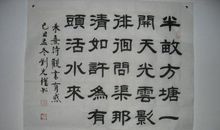 半畝方塘一
開天光雲影
徘徊問渠那
清如許為有
頭活水來
朱熹詩觀書有感